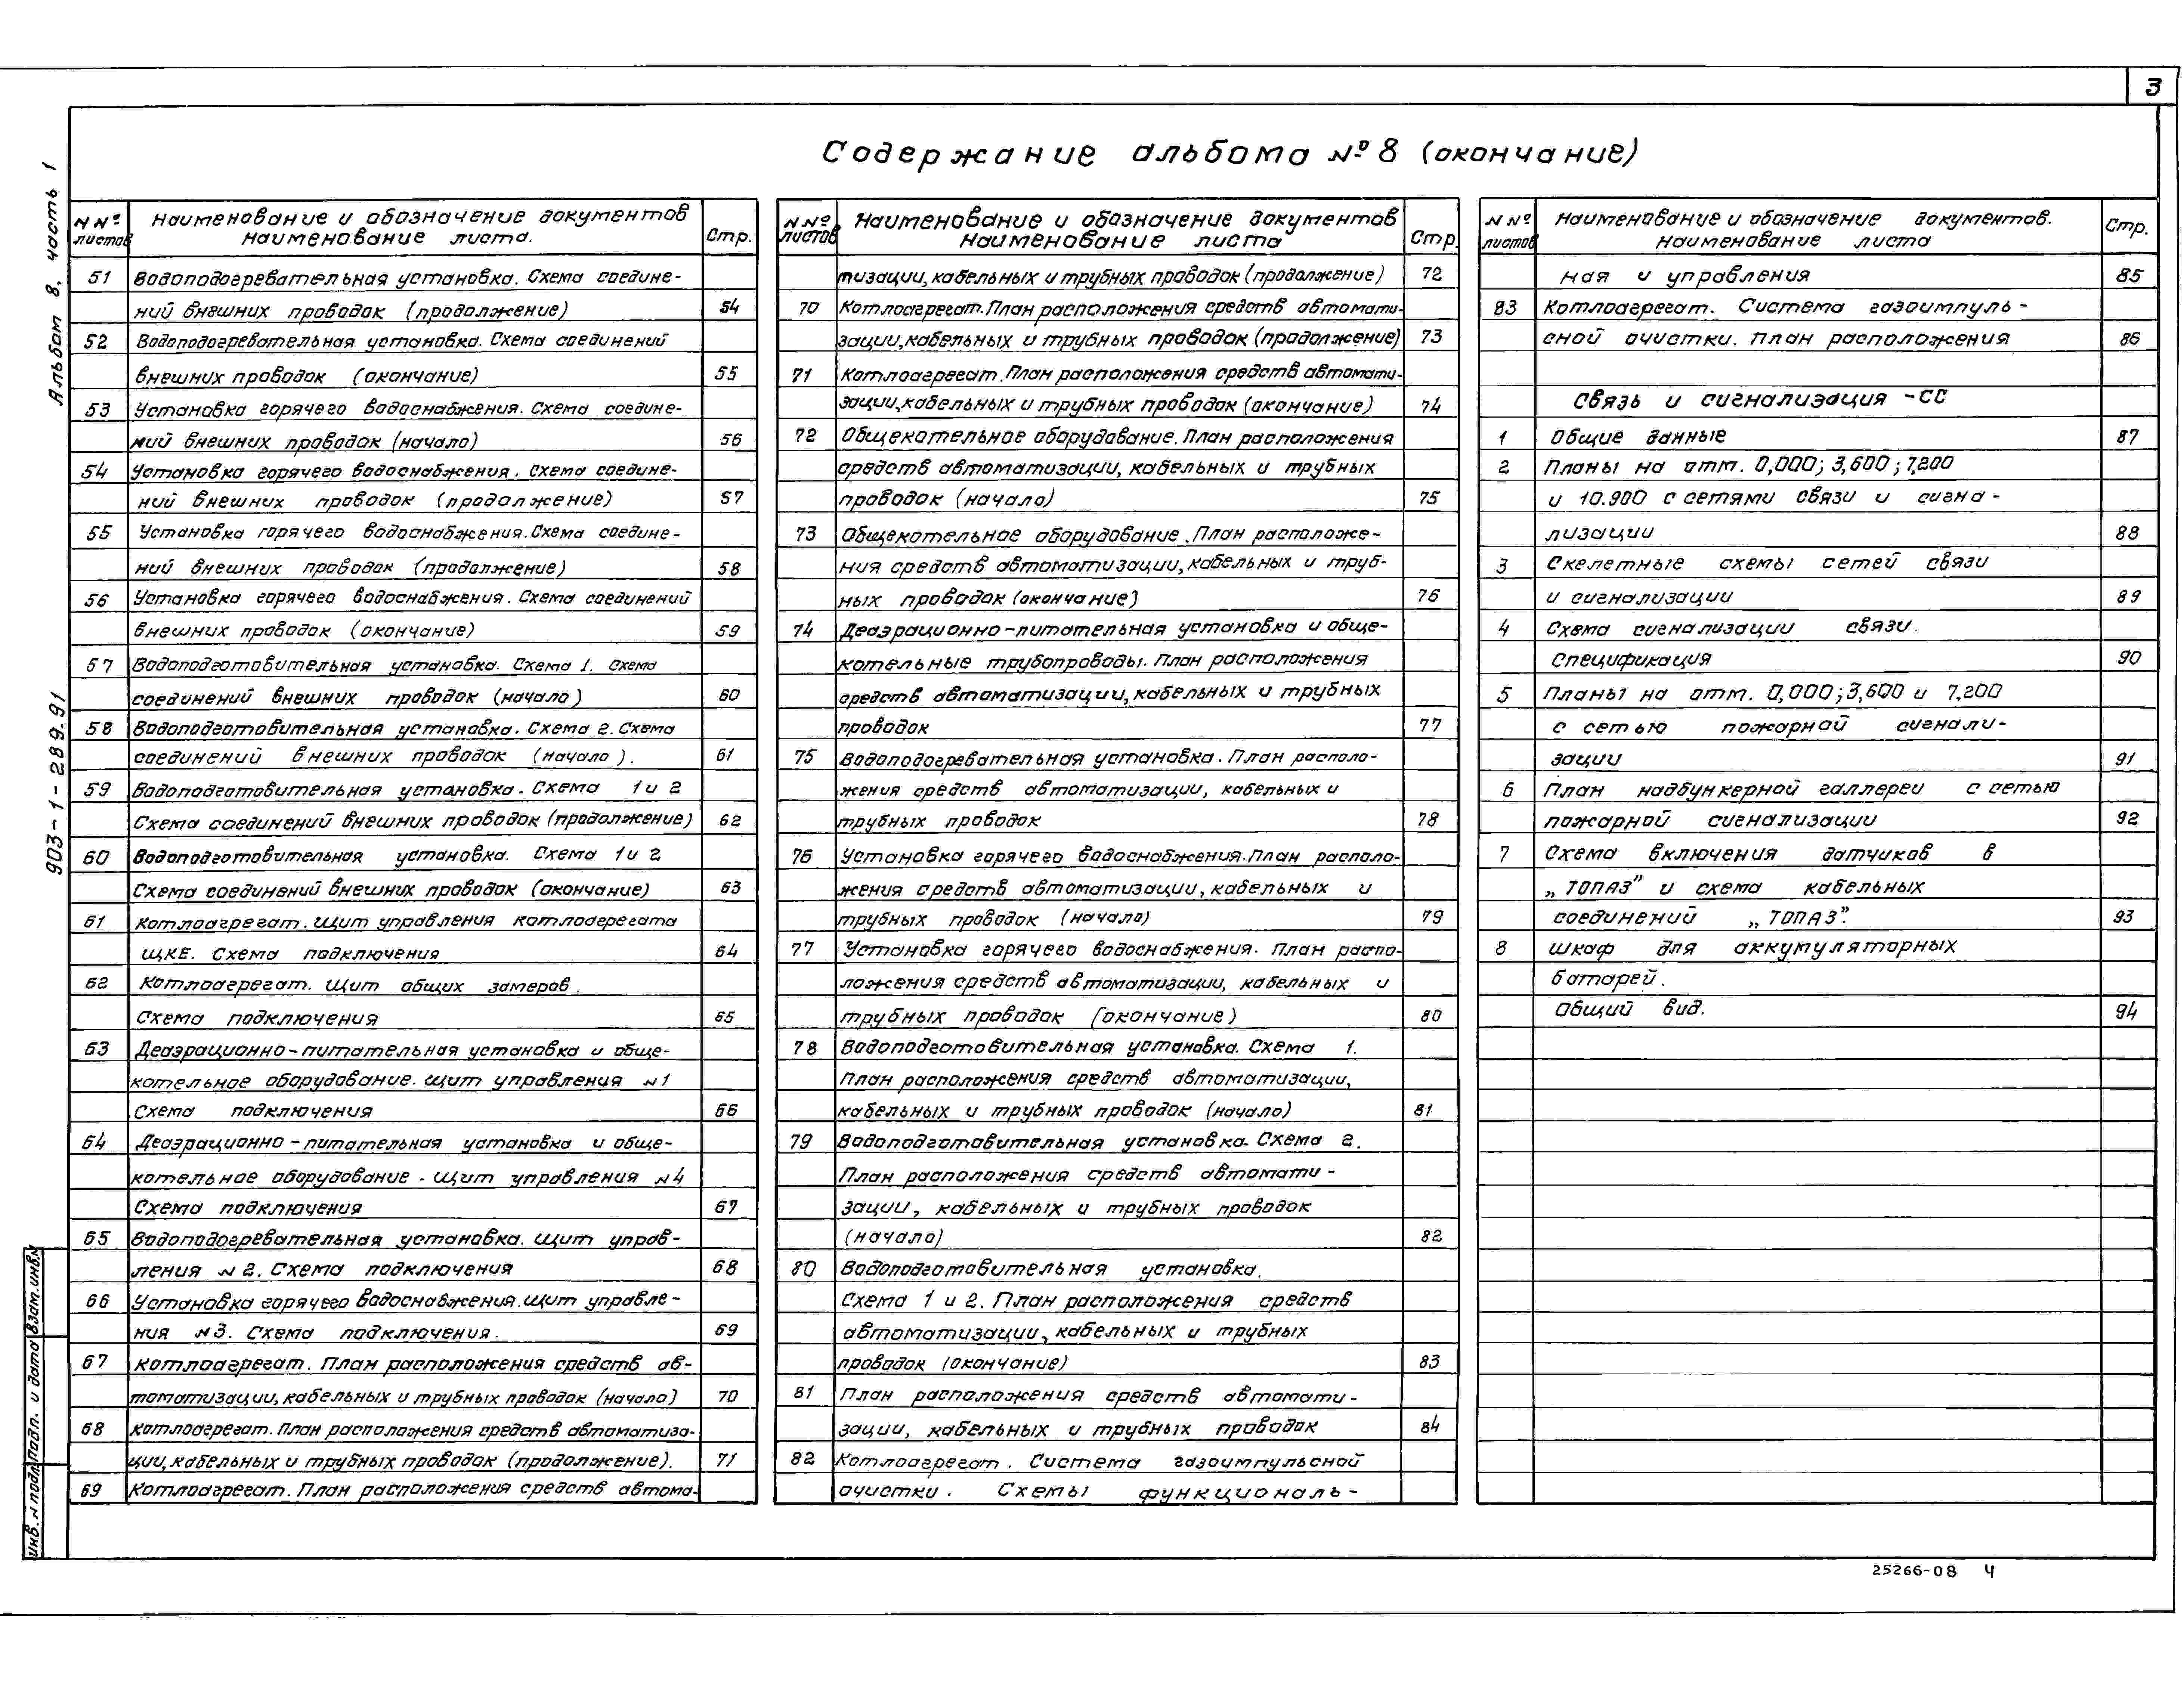 3
Содержание альбома № 8 (окончание)
Альбом 8. часть 1
903-1-289.91
N Nº листов
Наименование и обозначение документов
Наименование листа.
Стр.
51 Водоподогревательная установка. Схема соедине-
ний внешних проводок (продолжение) 54
52 Водоподогревательная установка. Схема соединений
внешних проводок (окончание) 55
53 Установка горячего водоснабжения. Схема соедине-
ний внешних проводок (начало) 56
54 Установка горячего водоснабжения. Схема соедине-
ний внешних проводок (продолжение) 57
55 Установка горячего водоснабжения. Схема соедине-
ний внешних проводок (продолжение) 58
56 Установка горячего водоснабжения. Схема соединений
внешних проводок (окончание) 59
57 Водоподготовительная установка. Схема 1. Схема
соединений внешних проводок (начало) 60
58 Водоподготовительная установка. Схема 2. Схема
соединений внешних проводок (начало). 61
59 Водоподготовительная установка. Схема 1 и 2
Схема соединений внешних проводок (продолжение) 62
60 Водоподготовительная установка. Схема 1 и 2
Схема соединений внешних проводок (окончание) 63
61 Котлоагрегат. Щит управления котлоагрегата
ЩКЕ. Схема подключения 64
62 Котлоагрегат. Щит общих замеров.
Схема подключения 65
63 Деаэрационно-питательная установка и обще-
котельное оборудование. Щит управления N1
Схема подключения 66
64 Деаэрационно-питательная установка и обще-
котельное оборудование. Щит управления N4
Схема подключения 67
65 Водоподогревательная установка. Щит управ-
ления N2. Схема подключения 68
66 Установка горячего водоснабжения. Щит управле-
ния N3. Схема подключения. 69
67 Котлоагрегат. План расположения средств ав-
томатизации, кабельных и трубных проводок (начало) 70
68 Котлоагрегат. План расположения средств автоматиза-
ции, кабельных и трубных проводок (продолжение). 71
69 Котлоагрегат. План расположения средств автома-
N Nº листов
Наименование и обозначение документов
Наименование листа
Стр.
тизации, кабельных и трубных проводок (продолжение) 72
70 Котлоагрегат. План расположения средств автомати-
зации, кабельных и трубных проводок (продолжение) 73
71 Котлоагрегат. План расположения средств автомати-
зации, кабельных и трубных проводок (окончание) 74
72 Общекотельное оборудование. План расположения
средств автоматизации, кабельных и трубных
проводок (начало) 75
73 Общекотельное оборудование. План расположе-
ния средств автоматизации, кабельных и труб-
ных проводок (окончание) 76
74 Деаэрационно-питательная установка и обще-
котельные трубопроводы. План расположения
средств автоматизации, кабельных и трубных
проводок 77
75 Водоподогревательная установка. План располо-
жения средств автоматизации, кабельных и
трубных проводок 78
76 Установка горячего водоснабжения. План располо-
жения средств автоматизации, кабельных и
трубных проводок (начало) 79
77 Установка горячего водоснабжения. План распо-
ложения средств автоматизации, кабельных и
трубных проводок (окончание) 80
78 Водоподготовительная установка. Схема 1.
План расположения средств автоматизации,
кабельных и трубных проводок (начало) 81
79 Водоподготовительная установка. Схема 2.
План расположения средств автомати-
зации, кабельных и трубных проводок
(начало) 82
80 Водоподготовительная установка.
Схема 1 и 2. План расположения средств
автоматизации, кабельных и трубных
проводок (окончание) 83
81 План расположения средств автомати-
зации, кабельных и трубных проводок 84
82 Котлоагрегат. Система газоимпульсной
очистки. Схемы функциональ-
N Nº листов
Наименование и обозначение документов.
Наименование листа
Стр.
ная и управления 85
83 Котлоагрегат. Система газоимпуль-
сной очистки. План расположения 86
Связь и сигнализация -СС
1 Общие данные 87
2 Планы на отм. 0,000; 3,600; 7,200
и 10.900 с сетями связи и сигна-
лизации 88
3 Скелетные схемы сетей связи
и сигнализации 89
4 Схема сигнализации связи.
Спецификация 90
5 Планы на отм. 0,000; 3,600 и 7,200
с сетью пожарной сигнали-
зации 91
6 План надбункерной галлереи с сетью
пожарной сигнализации 92
7 Схема включения датчиков в
„ТОПАЗ” и схема кабельных
соединений „ТОПАЗ”. 93
8 Шкаф для аккумуляторных
батарей.
Общий вид. 94
Инв. N подл. Подп. и дата Взам. инв. N
25266-08 4